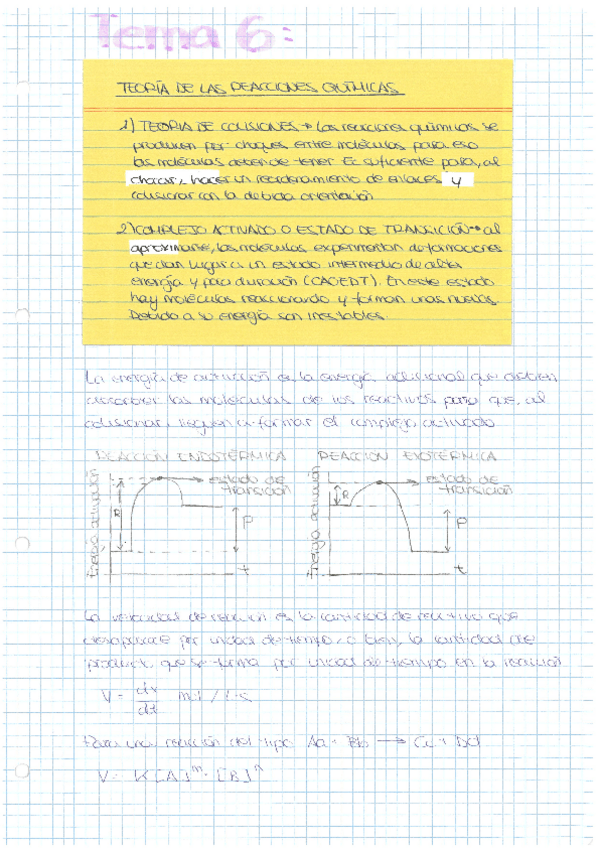 Tema 6:
TEORÍA DE LAS REACCIONES QUÍMICAS
1) TEORIA DE COLISIONES → Las reacciones químicas se
producen por choques entre moléculas, para eso
las moléculas deben de tener Ec suficiente para, al
chocar, hacer un reordenamiento de enlaces y
colisionar con la debida orientación
2) COMPLEJO ACTIVADO O ESTADO DE TRANSICIÓN → al
aproximarse, las moléculas experimentan deformaciones
que dan lugar a un estado intermedio de alta
energía y poca duración (CAOEDT). En este estado
hay moléculas reaccionando y forman unas nuevas.
Debido a su energía son inestables.
La energía de activación es la energía adicional que deben
absorber las moléculas de los reactivos para que, al
colisionar, lleguen a formar el complejo activado
REACCIÓN ENDOTÉRMICA REACCION EXOTÉRMICA
estado de
transición
estado de
transición
Energía activación
R
P
t
Energía activación
R
P
t
La velocidad de reacción es la cantidad de reactivo que
desaparece por unidad de tiempo, o bien, la cantidad de
producto que se forma por unidad de tiempo en la reacción
V = dx/dt mol / l·s
Para una reacción del tipo Aa + Bb → Cc + Dd
V = K[A]ᵐ · [B]ⁿ